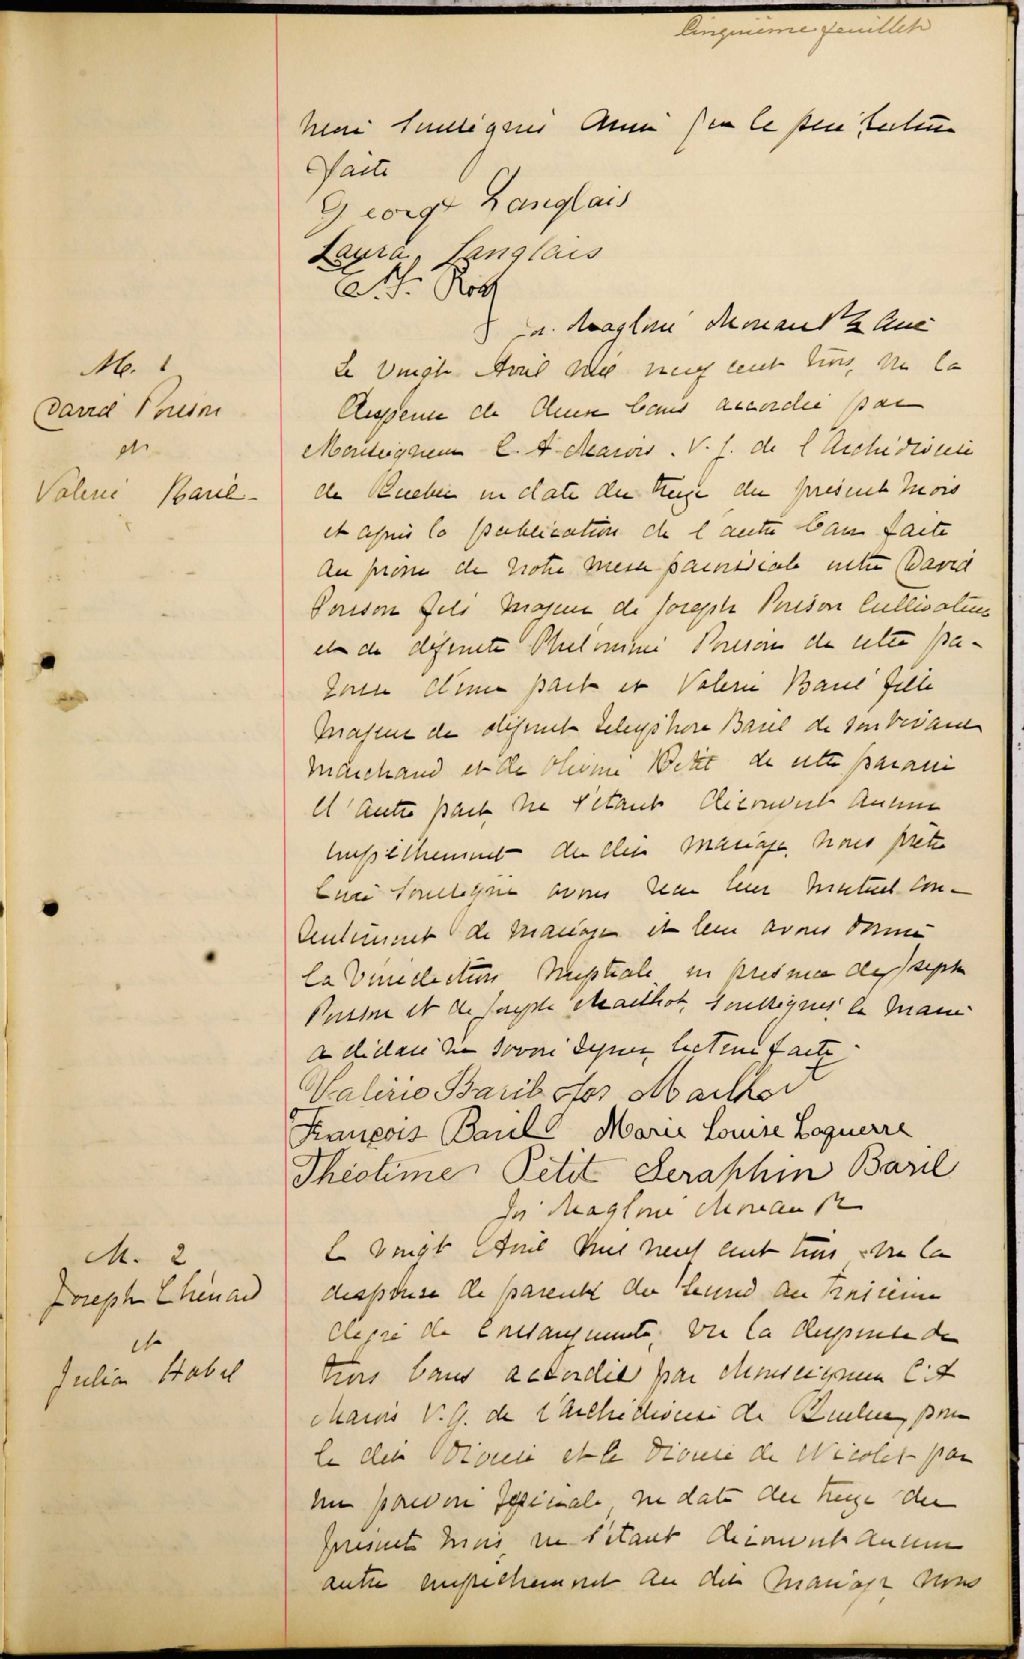 Cinquième feuillet
soussignés ainsi que le père, lecture
faite
George Langlais
Laura Langlais
Jos. Magloire Moreau Ptr Curé
M. 1
David Poisson
et
Valerie Baril
Le vingt Avril mil neuf cent trois, vu la
dispense de deux bans accordée par
Monseigneur C. A Marois. V. G. de l'Archidiocese
de Quebec en date du treize du présent mois
et après la publication de l'autre ban faite
au prône de notre messe paroissiale entre David
Poisson fils majeur de Joseph Poisson Cultivateur
et de défunte Philomène Poisson de cette pa-
roisse d'une part et Valerie Baril fille
majeur de défunt Telesphore Baril de son vivant
marchand et de Olivine Petit de cette paroisse
d'autre part, ne s'étant découvert aucun
empêchement au dit mariage, nous prêtre
Curé soussigné avons reçu leur mutuel con-
sentement de mariage et leur avons donné
la bénédiction nuptiale en présence de Joseph
Poisson et de Joseph Mailhot, soussignés, le marié
a déclaré ne savoir signer, lecture faite.
Valérie Baril Jos Mailhot
François Baril Marie Louise Laguerre
Théotime Petit Seraphin Baril
Jos Magloire Moreau Ptr
M. 2
Joseph Chénard
et
Julia Habel
Le vingt Avril mil neuf cent trois, vu la
dispense de parenté du second au troisième
degré de consanguinité, vu la dispense de
trois bans accordée par Monseigneur C. A
Marois V. G. de l'archidiocese de Quebec, pour
le dit Diocese et le Diocese de Nicolet par
un pouvoir spéciale, en date du treize du
présent mois, ne s'étant découvert aucun
autre empêchement au dit mariage, nous